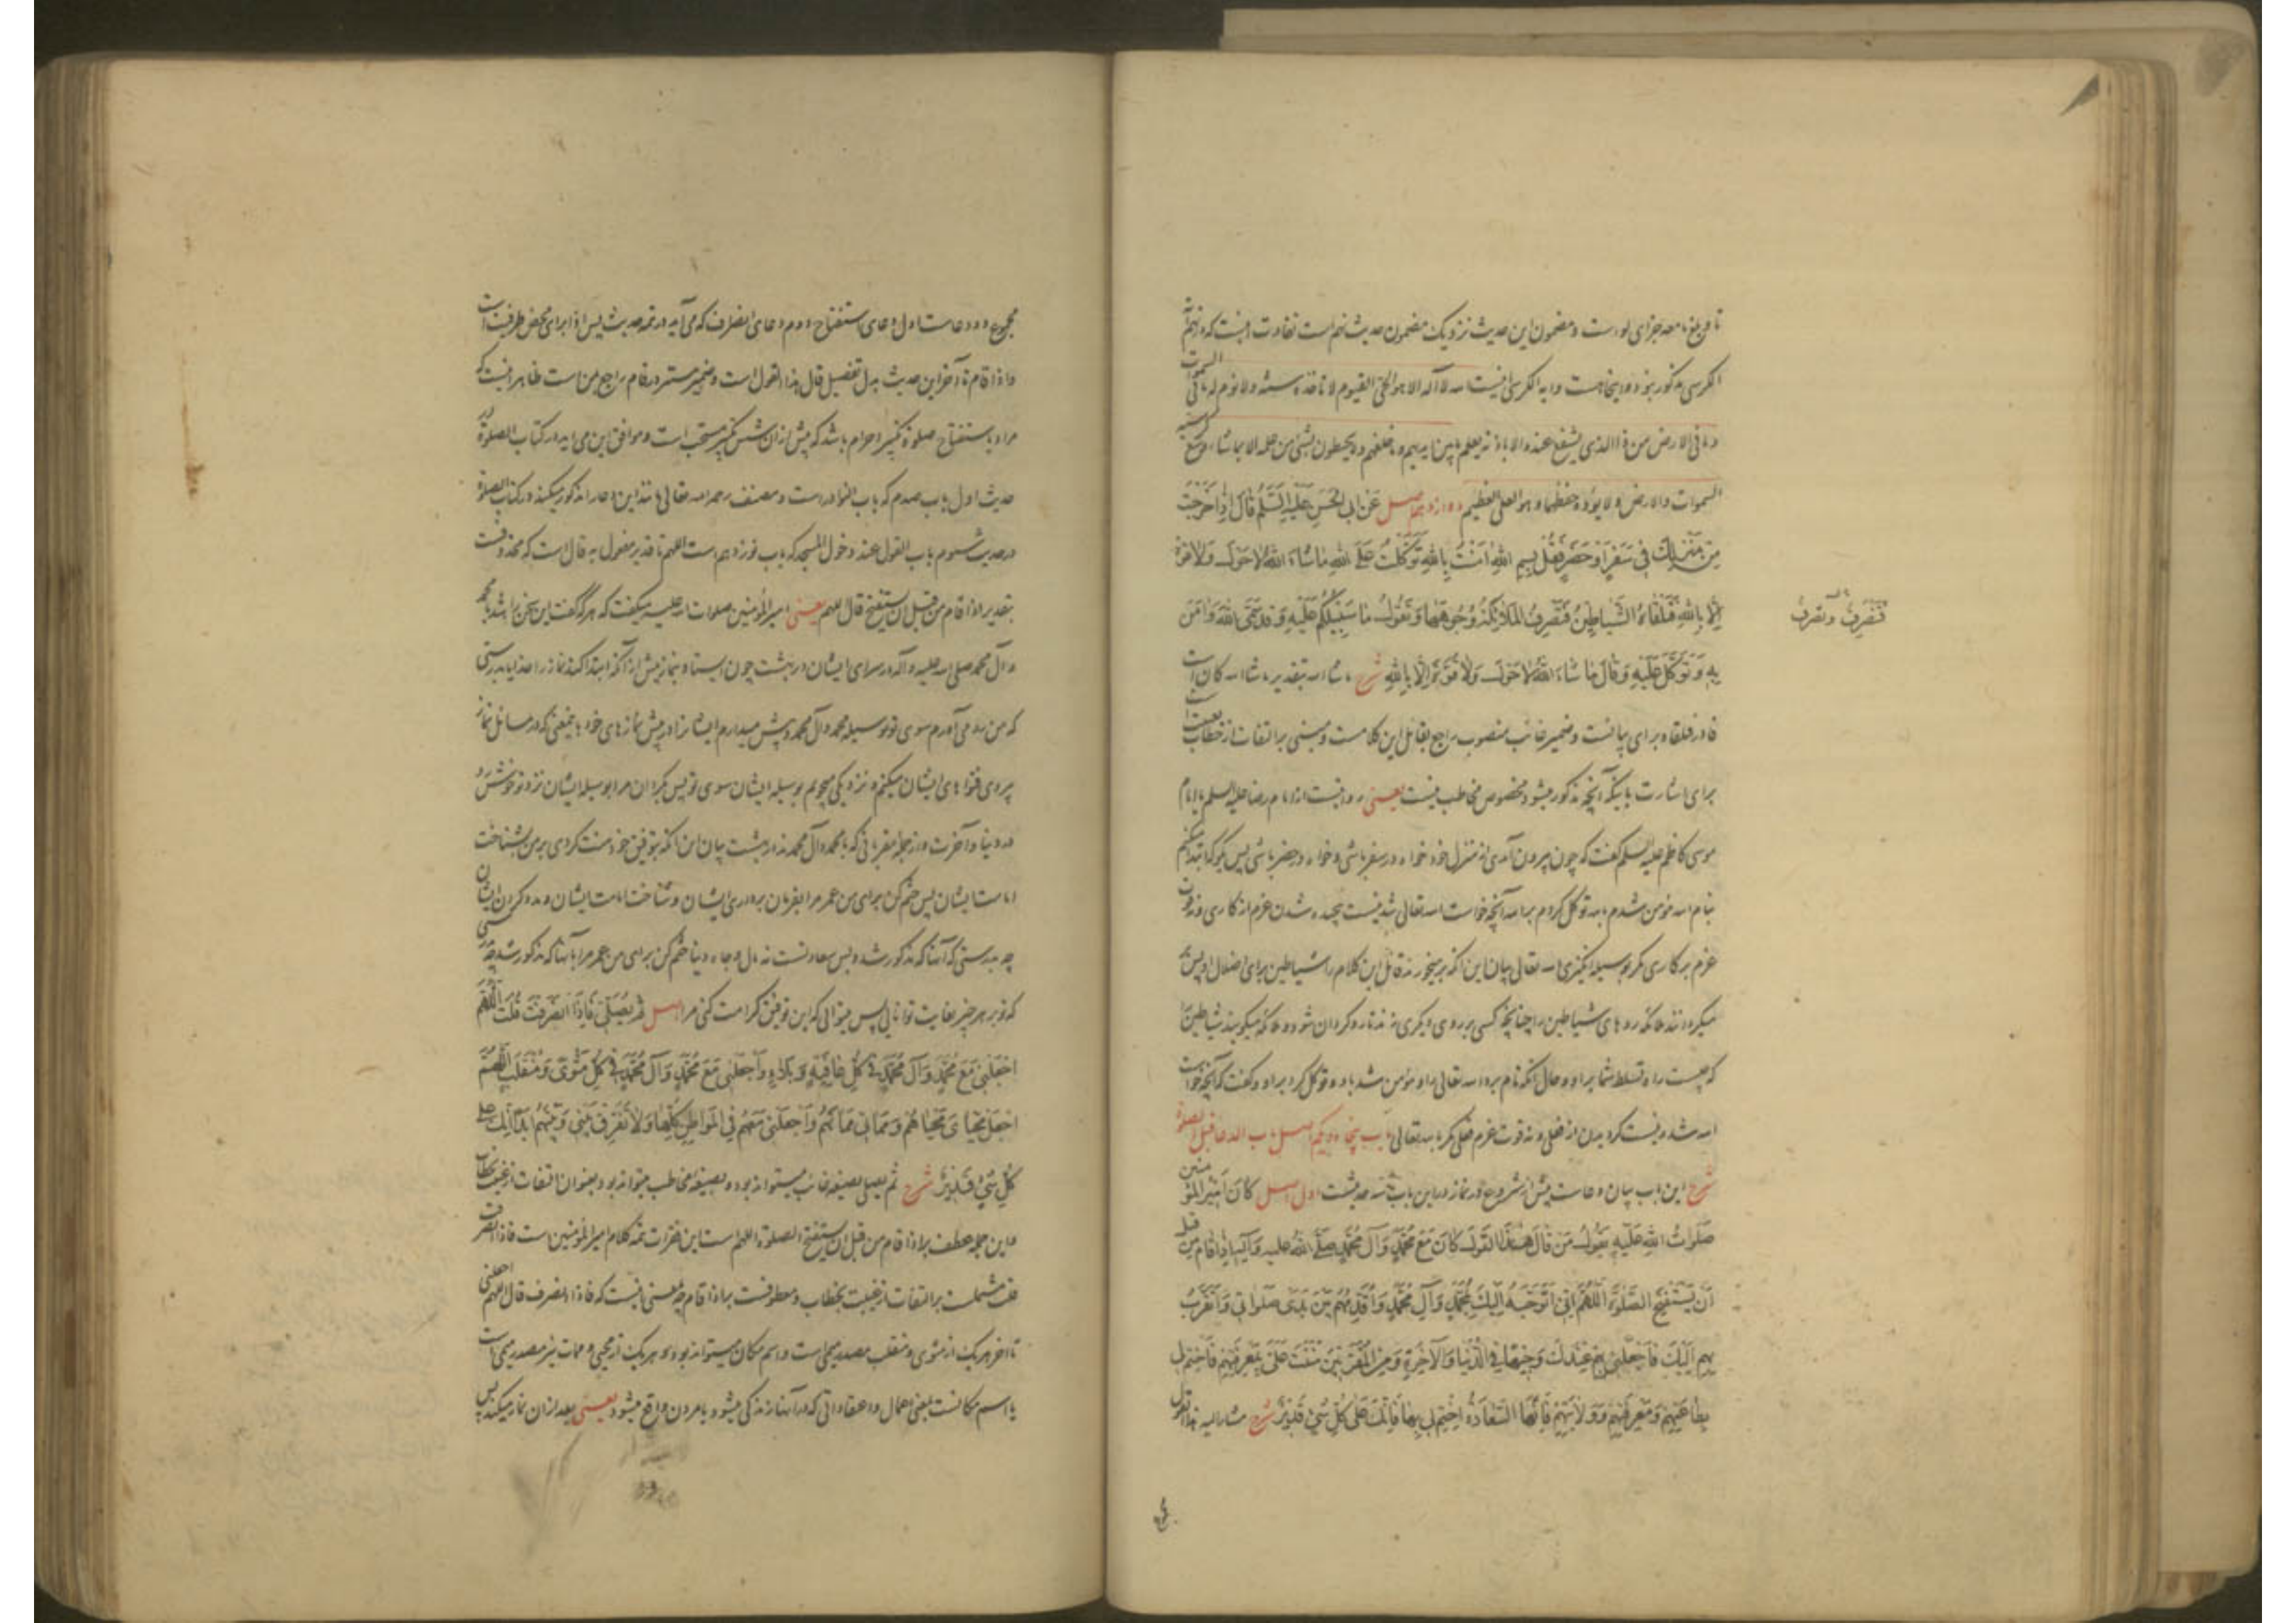 تا و بلغ ما معه جزای او است و مضمون این حدیث نزدیک مضمون حدیث نهم است تفاوت اینست که در نهم آیة
الکرسی مذکور نبود و در اینجا هست و آیه الکرسی اینست الله لا اله الا هو الحی القیوم لا تاخذه سنة و لا نوم له ما فی السموات
و ما فی الارض من ذا الذی یشفع عنده الا باذنه یعلم ما بین ایدیهم و ما خلفهم و لا یحیطون بشئ من علمه الا بما شاء وسع کرسیه
السموات و الارض و لا یؤده حفظهما و هو العلی العظیم دوازدهم اصل عَن اَبی الحَسَنِ عَلَیهِ السَّلَمُ قالَ اِذا خَرَجتَ
مِن مَنزِلِکَ فی سَفَرٍ اَو حَضَرٍ فَقُل بِسمِ اللهِ امَنتُ بِاللهِ تَوَکَّلتُ عَلَی اللهِ ما شاءَ اللهُ لا حَولَ وَلا قوّة
اِلّا بِاللهِ فَتَلقاهُ الشَّیاطینُ فَتَصرِفُ المَلائِکَةُ وُجوهَها وَتَقولُ ما سَبیلُکُم عَلَیهِ وَقَد سَمَّی اللهَ وَامَنَ
فَتَضرِبُ و تصرف
بِهِ وَتَوَکَّلَ عَلَیهِ وَقالَ ما شاءَ اللهُ لا حَولَ وَلا قُوَّةَ اِلّا بِاللهِ شرح ما شاء الله بتقدیر ما شاء الله کان است
فا در فتلقاه برای بیانست و ضمیر غائب منصوب راجع بقائل این کلامست و مبنی بر التفات از خطاب بغیبت است
برای اشارت باینکه آنچه مذکور میشود مخصوص مخاطب نیست یعنی روایتست از امام رضا علیه السلم یا امام
موسی کاظم علیه السلم گفت که چون بیرون آمدی از منزل خود خواه در سفر باشی و خواه در حضر باشی پس بگو که ابتدا میکنم
بنام الله مؤمن شدم بالله توکل کردم بر الله آنچه خواست الله تعالی شد نیست پیچیده شدن عزم از کاری و نه قوت
عزم بر کاری مگر بوسیله انگیزی الله تعالی بیان این آنکه بر میخورند قائل این کلام را شیاطین برای اضلال او پس
میگردانند ملائکه روهای شیاطین را چنانچه کسی بر روی دیگری زند تا روگردان شود و ملائکه میگویند شیاطین را
که چیست راه تسلط شما بر او و حال آنکه نام برد الله تعالی را و مؤمن شد باو و توکل کرد بر او و گفت که آنچه خواست
الله شد و نیست گردیدن از فعلی و نه قوت عزم فعلی مگر بالله تعالی باب پنجاه و یکم اصل باب الدعا قبل الصلوة
شرح این باب بیان دعاست پیش از شروع در نماز در این باب سه حدیثست اول اصل کانَ اَمیرُ المؤمنین
صَلَواتُ اللهِ عَلَیهِ یَقولُ مَن قالَ هذَا القَولَ کانَ مَعَ مُحَمَّدٍ وَآلِ مُحَمَّدٍ صَلَّی اللهُ علیه وَآلِهِ اِذا قامَ مِن قبل
اَن یَستَفتِحَ الصَّلوةَ اَللّهُمَّ اِنّی اَتَوَجَّهُ اِلَیکَ بِمُحَمَّدٍ وَآلِ مُحَمَّدٍ وَاُقَدِّمُهُم بَینَ یَدَی صَلَواتی وَاَتَقَرَّبُ
بِهِم اِلَیکَ فَاجعَلنی بِهِم عِندَکَ وَجیهًا فِی الدُّنیا وَالآخِرَةِ وَمِنَ المُقَرَّبینَ مَنَنتَ عَلَیَّ بِمَعرِفَتِهِم فَاختِم لی
بِطاعَتِهِم وَمَعرِفَتِهِم وَوَلایَتِهِم فَاِنَّهَا السَّعادَةُ اختِم لی بِها فَاِنَّکَ عَلی کُلِّ شَئٍ قَدیرٌ شرح مشار الیه هذا القول
مجموع دو دعاست اول دعای استفتاح دوم دعای انصراف که می آید در تتمه حدیث پس اذا برای محض ظرفیت است
و اذا قام تا آخر این حدیث بدل تفصیل قال هذا القول است و ضمیر مستتر در قام راجع بمن است ظاهر اینست که
مراد باستفتاح صلوة تکبیر احرام باشد که پیش از آن شش تکبیر مستحب است و موافق این می آید در کتاب الصلوة در
حدیث اول باب صدم که باب النوادر است و مصنف رحمه الله تعالی مانند این دعا را مذکور میکند در کتاب الصلوة
در حدیث سوم باب القول عند دخول المسجد که باب نوزدهم است اللهم تا قدیر مفعول به قال است که محذوفست
بتقدیر اذا قام من قبل ان یستفتح قال اللهم یعنی امیر المؤمنین صلوات الله علیه میگفت که هر که گفت این سخن را باشد با محمد
و آل محمد صلی الله علیه و آله در سرای ایشان در بهشت چون ایستاد بنماز پیش از آنکه ابتدا کند نماز را خدایا بدرستی
که من رو می آورم سوی تو بوسیله محمد و آل محمد و پیش میدارم ایشانرا در پیش نمازهای خود بایمعنی که در مسائل نماز
پیروی فتواهای ایشان میکنم و نزدیکی میجویم بوسیله ایشان سوی تو پس بگردان مرا بوسیله ایشان نزد تو خوشرو
در دنیا و آخرت و از جمله مقربانی که با محمد و آل محمدند در بهشت بیان این آنکه بتوفیق خود منت کردی بر من بشناخت
امامت ایشان پس ختم کن برای من عمر مرا بفرمان برداری ایشان و شناخت امامت ایشان و مددکردن ایشان
چه بدرستی که آنها که مذکور شد و بس سعادتست نه مال و جاه دنیا ختم کن برای من عمر مرا بآنها که مذکور شد چه بدرستی
که تو بر هر چیز بغایت توانایی پس میتوانی که این توفیق کرامت کنی مرا اصل ثُمَّ یُصَلّی فَاِذَا انصَرَفتَ قُلتَ اَللّهُمَّ
اجعَلنی مَعَ مُحَمَّدٍ وَآلِ مُحَمَّدٍ فی کُلِّ عافِیَةٍ وَبَلاءٍ وَاجعَلنی مَعَ مُحَمَّدٍ وَآلِ مُحَمَّدٍ فی کُلِّ مَثوًی وَمُنقَلَبٍ اَللّهُمَّ
اجعَل مَحیایَ مَحیاهُم وَمَماتی مَماتَهُم وَاجعَلنی مَعَهُم فِی المَواطِنِ کُلِّها وَلا تُفَرِّق بَینی وَبَینَهُم اَبَدًا اِنَّکَ عَلی
کُلِّ شَئٍ قَدیرٌ شرح ثم یصلی بصیغه غائب میتواند بود و بصیغه مخاطب میتواند بود بعنوان التفات از غیبت بخطاب
و این جمله عطف بر اذا قام من قبل ان یستفتح الصلوة اللهم است این فقرات تتمه کلام امیر المؤمنین است فاذا انصرفت
قلت مشتملست بر التفات از غیبت بخطاب و معطوفست بر اذا قام چه معنی اینست که فاذا انصرف قال اللهم اجعلنی
تا آخر هر یک از مثوی و منقلب مصدر میمی است و اسم مکان میتواند بود و هر یک از محیی و ممات نیز مصدر میمی است
یا اسم مکانست یعنی اعمال و اعتقاداتی که در آنها زندگی میشود یا مردن واقع میشود یعنی بعد از آن نماز میکند پس